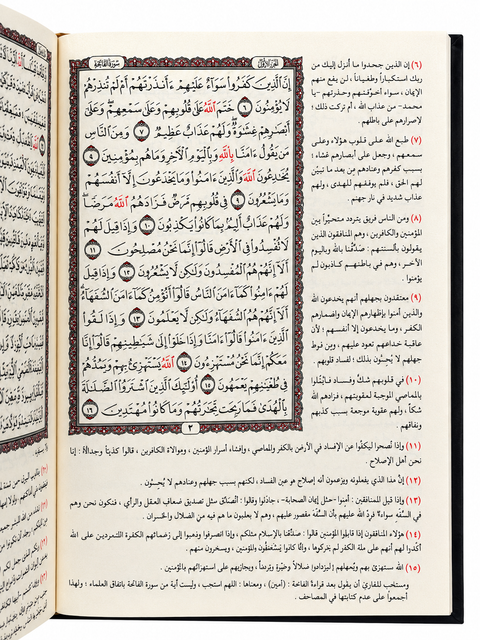 الجزء الأول
سورة الفاتحة
إِنَّ الَّذِينَ كَفَرُوا سَوَاءٌ عَلَيْهِمْ ءَأَنذَرْتَهُمْ أَمْ لَمْ تُنذِرْهُمْ
لَا يُؤْمِنُونَ ٦ خَتَمَ اللَّهُ عَلَىٰ قُلُوبِهِمْ وَعَلَىٰ سَمْعِهِمْ وَعَلَىٰ
أَبْصَارِهِمْ غِشَاوَةٌ وَلَهُمْ عَذَابٌ عَظِيمٌ ٧ وَمِنَ النَّاسِ
مَن يَقُولُ ءَامَنَّا بِاللَّهِ وَبِالْيَوْمِ الْآخِرِ وَمَا هُم بِمُؤْمِنِينَ ٨
يُخَادِعُونَ اللَّهَ وَالَّذِينَ ءَامَنُوا وَمَا يَخْدَعُونَ إِلَّا أَنفُسَهُمْ
وَمَا يَشْعُرُونَ ٩ فِي قُلُوبِهِم مَّرَضٌ فَزَادَهُمُ اللَّهُ مَرَضًا
وَلَهُمْ عَذَابٌ أَلِيمٌ بِمَا كَانُوا يَكْذِبُونَ ١٠ وَإِذَا قِيلَ لَهُمْ
لَا تُفْسِدُوا فِي الْأَرْضِ قَالُوا إِنَّمَا نَحْنُ مُصْلِحُونَ ١١
أَلَا إِنَّهُمْ هُمُ الْمُفْسِدُونَ وَلَٰكِن لَّا يَشْعُرُونَ ١٢ وَإِذَا قِيلَ
لَهُمْ ءَامِنُوا كَمَا ءَامَنَ النَّاسُ قَالُوا أَنُؤْمِنُ كَمَا ءَامَنَ السُّفَهَاءُ
أَلَا إِنَّهُمْ هُمُ السُّفَهَاءُ وَلَٰكِن لَّا يَعْلَمُونَ ١٣ وَإِذَا لَقُوا
الَّذِينَ ءَامَنُوا قَالُوا ءَامَنَّا وَإِذَا خَلَوْا إِلَىٰ شَيَاطِينِهِمْ قَالُوا إِنَّا
مَعَكُمْ إِنَّمَا نَحْنُ مُسْتَهْزِءُونَ ١٤ اللَّهُ يَسْتَهْزِئُ بِهِمْ وَيَمُدُّهُمْ
فِي طُغْيَانِهِمْ يَعْمَهُونَ ١٥ أُولَٰئِكَ الَّذِينَ اشْتَرَوُا الضَّلَالَةَ
بِالْهُدَىٰ فَمَا رَبِحَت تِّجَارَتُهُمْ وَمَا كَانُوا مُهْتَدِينَ ١٦
٢
(٦) إن الذين جحدوا ما أنزل إليك من
ربك استكباراً وطغياناً، لن يقع منهم
الإيمان، سواء أخوَّفتهم وحذرتهم -يا
محمد- من عذاب الله، أم تركت ذلك؛
لإصرارهم على باطلهم.
(٧) طبع الله على قلوب هؤلاء وعلى
سمعهم، وجعل على أبصارهم غشاء؛
بسبب كفرهم وعنادهم من بعد ما تبيَّن
لهم الحق، فلم يوفقهم للهدى، ولهم
عذاب شديد في نار جهنم.
(٨) ومن الناس فريق يتردد متحيِّراً بين
المؤمنين والكافرين، وهم المنافقون الذين
يقولون بألسنتهم: صدَّقْنا بالله وباليوم
الآخر، وهم في باطنهم كاذبون لم
يؤمنوا.
(٩) معتقدون بجهلهم أنهم يخدعون الله
والذين آمنوا بإظهارهم الإيمان وإضمارهم
الكفر، وما يخدعون إلا أنفسهم؛ لأن
عاقبة خداعهم تعود عليهم، ومن فرط
جهلهم لا يُحِسُّون بذلك؛ لفساد قلوبهم.
(١٠) في قلوبهم شكٌّ وفساد فابْتُلوا
بالمعاصي الموجبة لعقوبتهم، فزادهم الله
شكاً، ولهم عقوبة موجعة بسبب كذبهم
ونفاقهم.
(١١) وإذا نُصحوا ليكفُّوا عن الإفساد في الأرض بالكفر والمعاصي، وإفشاء أسرار المؤمنين، وموالاة الكافرين، قالوا كذباً وجدالاً: إنا
نحن أهل الإصلاح.
(١٢) إنَّ هذا الذي يفعلونه ويزعمون أنه إصلاح هو عين الفساد، لكنهم بسبب جهلهم وعنادهم لا يُحِسُّون.
(١٣) وإذا قيل للمنافقين: آمِنوا -مثل إيمان الصحابة-، جادلوا وقالوا: أنُصَدِّق مثل تصديق ضعاف العقل والرأي، فنكون نحن وهم
في السَّفَهِ سواء؟ فردَّ الله عليهم بأن السَّفَه مقصور عليهم، وهم لا يعلمون ما هم فيه من الضلال والخسران.
(١٤) هؤلاء المنافقون إذا قابلوا المؤمنين قالوا: صدَّقنا بالإسلام مثلكم، وإذا انصرفوا وذهبوا إلى زعمائهم الكفرة المتمردين على الله
أكَّدوا لهم أنهم على ملة الكفر لم يتركوها، وأنَّما كانوا يَسْتَخِفُّون بالمؤمنين، ويسخرون منهم.
(١٥) الله يستهزئ بهم ويُمهلهم؛ ليزدادوا ضلالاً وحيْرة وتردداً، ويجازيهم على استهزائهم بالمؤمنين.
ومستحب للقارئ أن يقول بعد قراءة الفاتحة: (آمين)، ومعناها: اللهم استجب، وليست آية من سورة الفاتحة باتفاق العلماء؛ ولهذا
أجمعوا على عدم كتابتها في المصاحف.